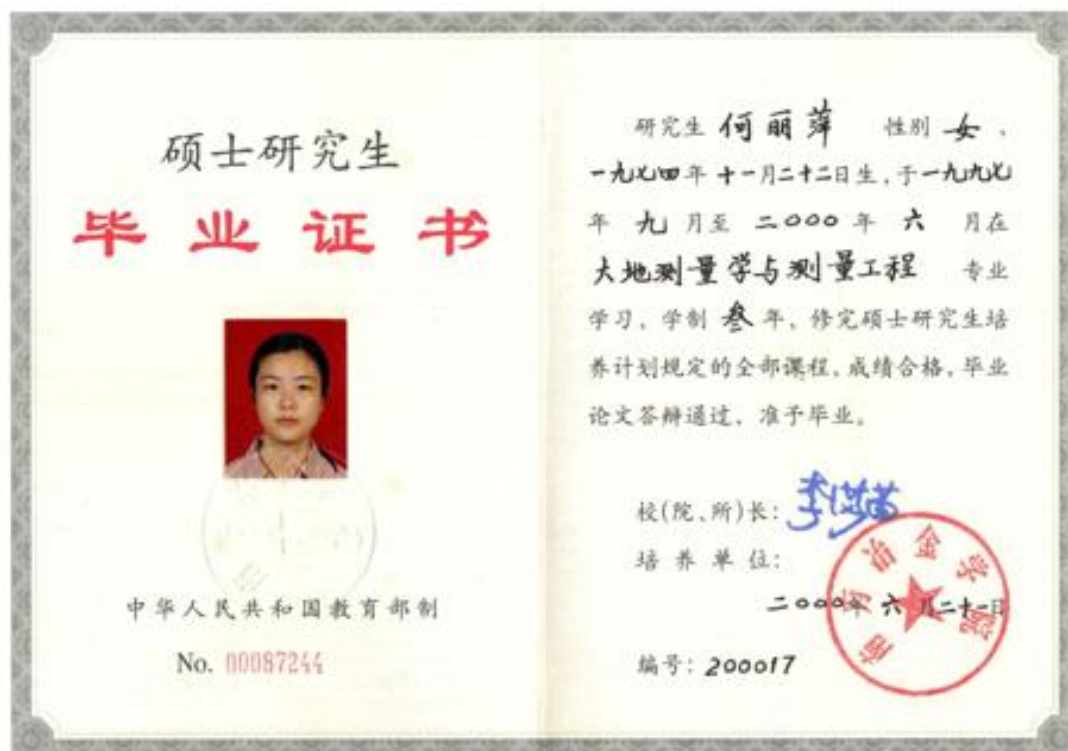 硕士研究生
毕业证书
中华人民共和国教育部制
No. 00087244
研究生 何丽萍 性别 女、
一九七四年 十一月二十二日生,于一九九七
年 九 月至 二〇〇〇 年 六 月在
大地测量学与测量工程 专业
学习、学制 叁 年、修完硕士研究生培
养计划规定的全部课程,成绩合格,毕业
论文答辩通过,准予毕业。
校(院、所)长:
培养单位:
南方冶金学院
二〇〇〇年 六 月二十一日
编号: 200017